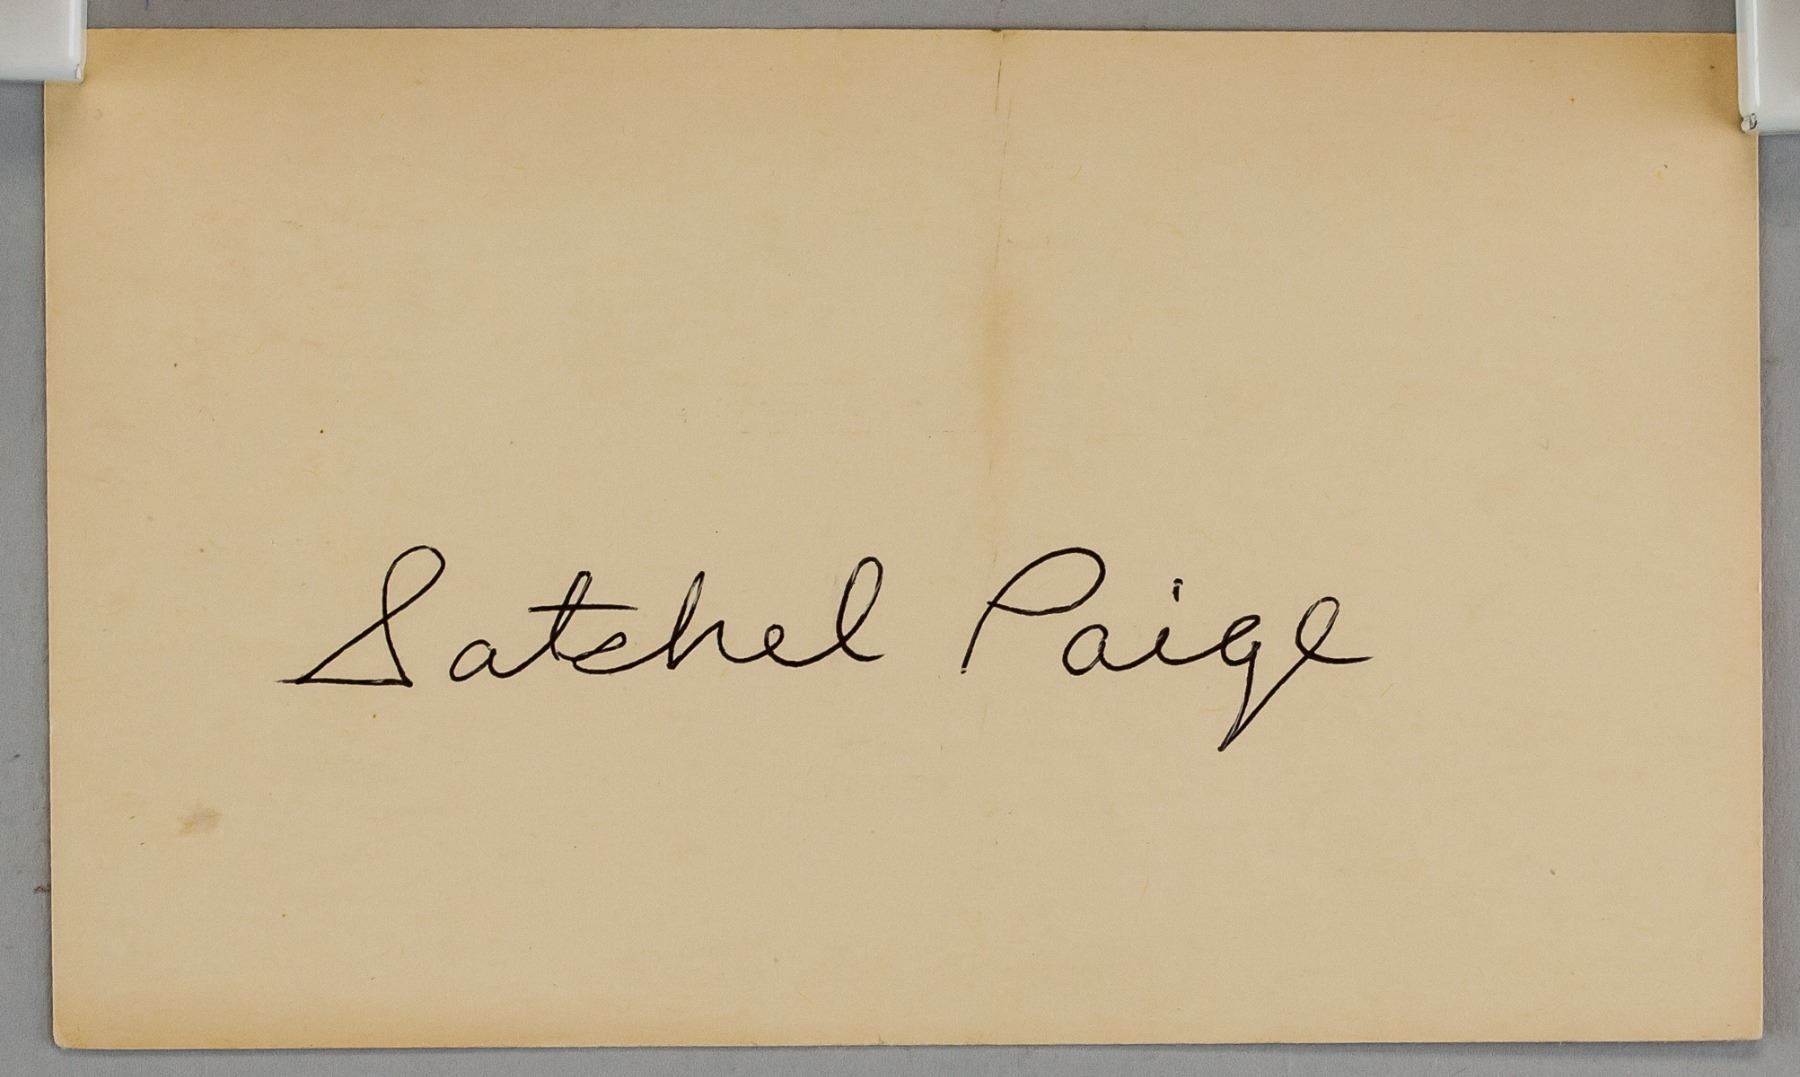 Satchel Paige